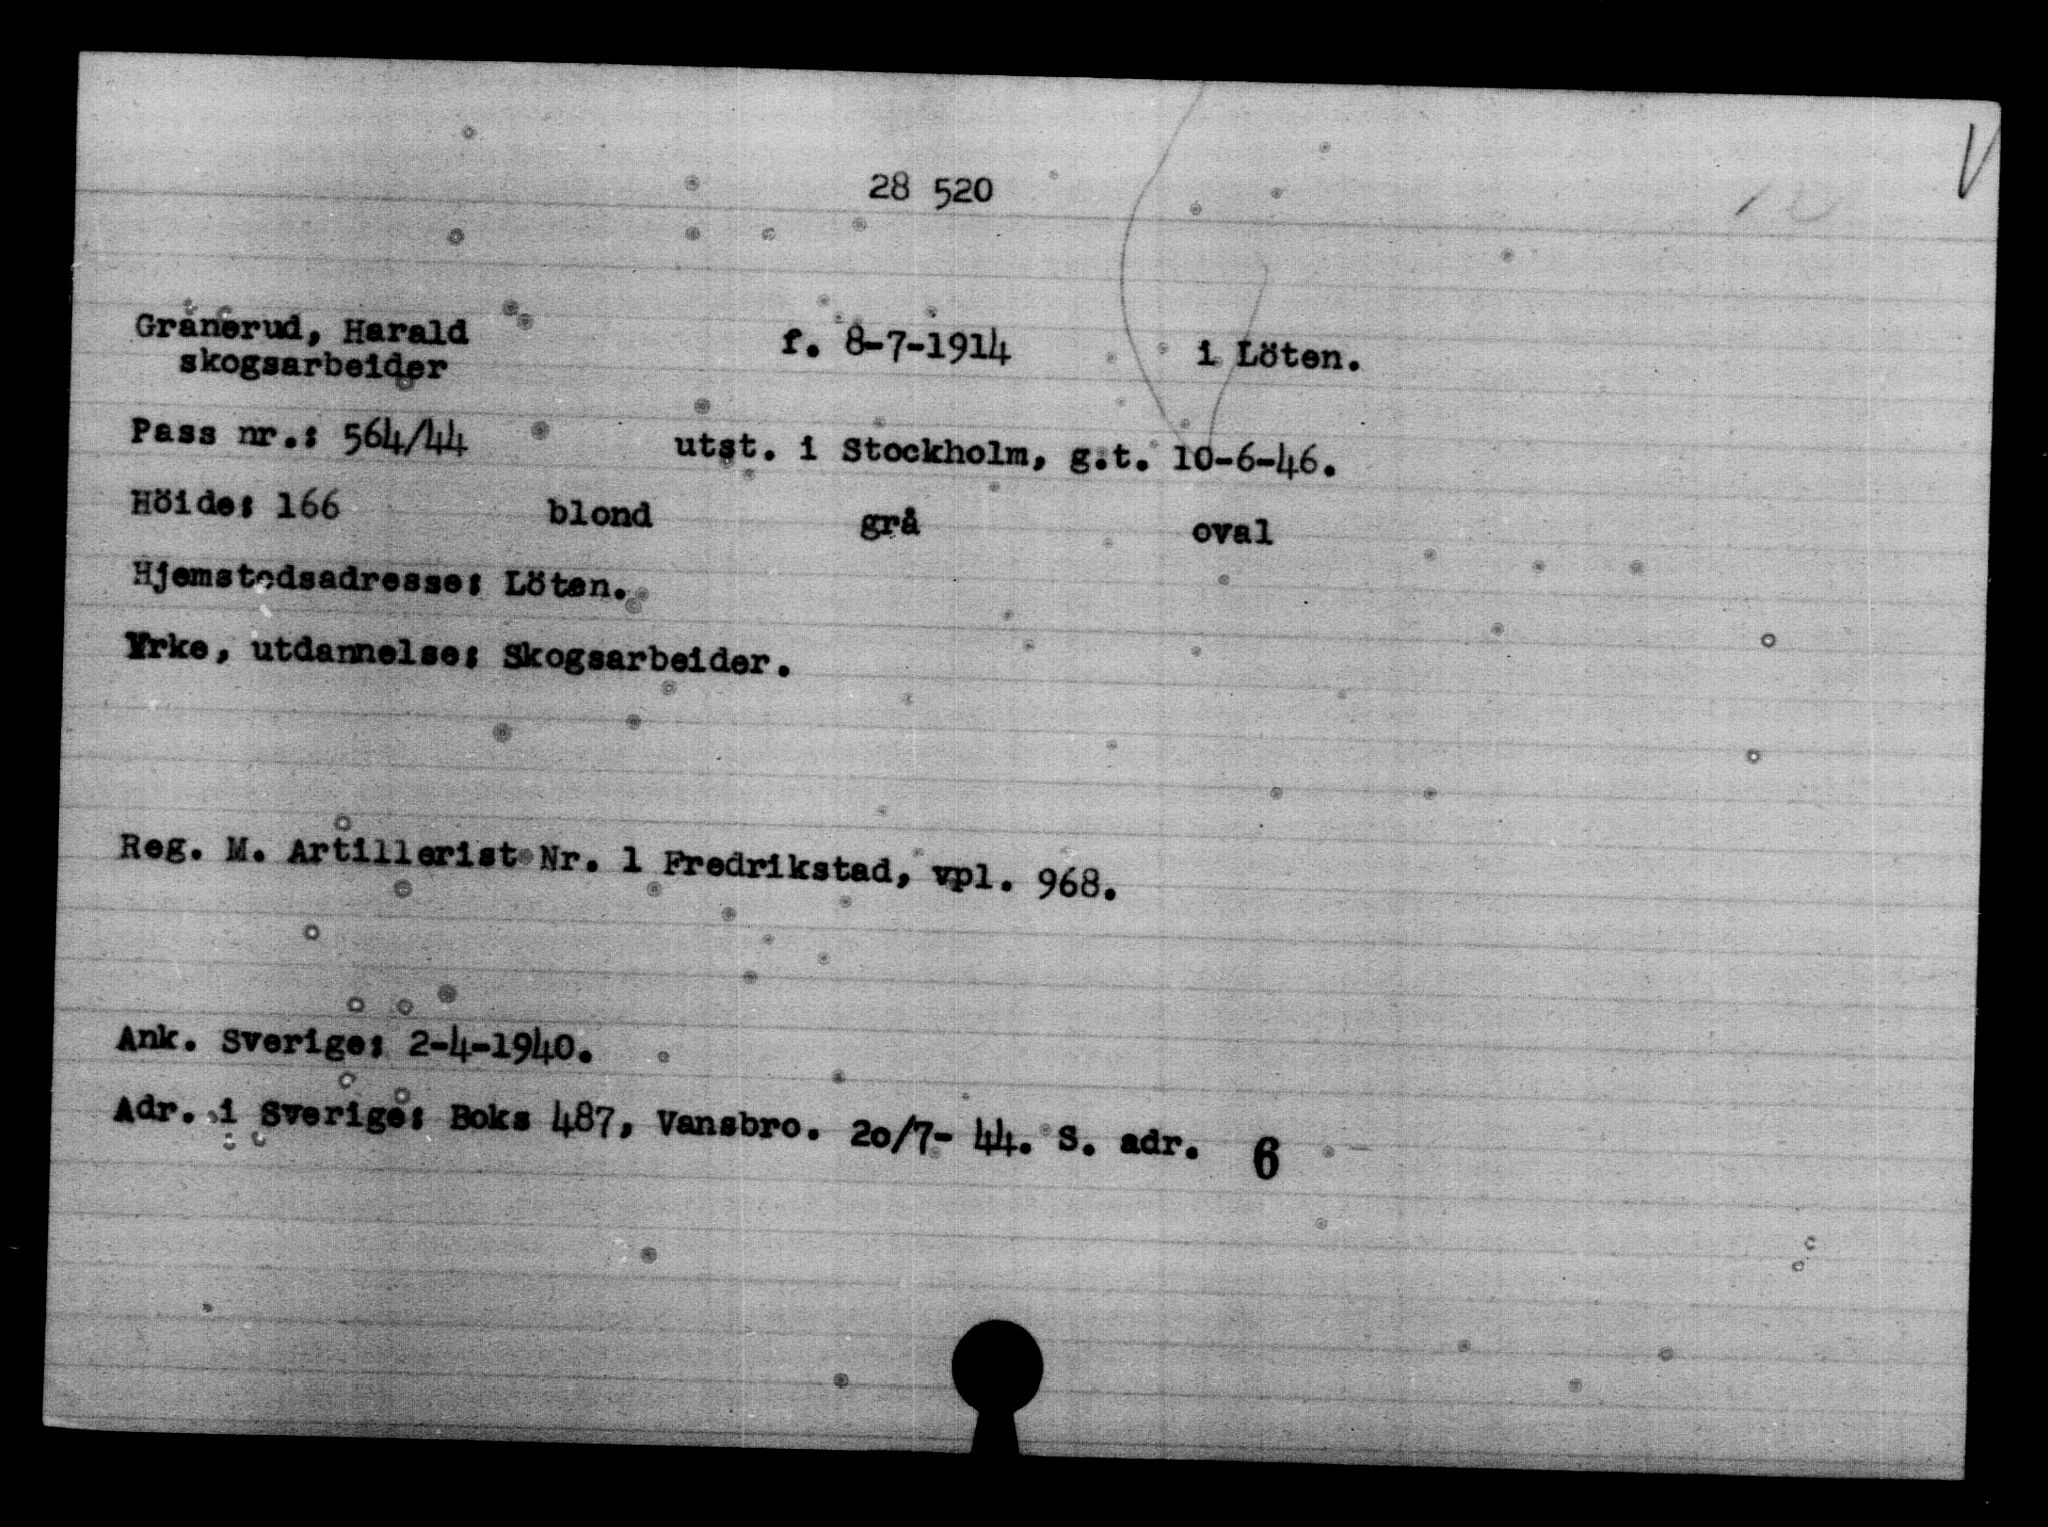 28 520
Grånerud, Harald f. 8-7-1914 i Löten.
skogsarbeider
Pass nr.: 564/44 utst. i Stockholm, g.t. 10-6-46.
Höide: 166 blond grå oval
Hjemstedsadresse: Löten.
Yrke, utdannelse: Skogsarbeider.
Reg. M. Artillerist Nr. 1 Fredrikstad, vpl. 968.
Ank. Sverige: 2-4-1940.
Adr. i Sverige: Boks 487, Vansbro. 20/7- 44. S. adr. 6